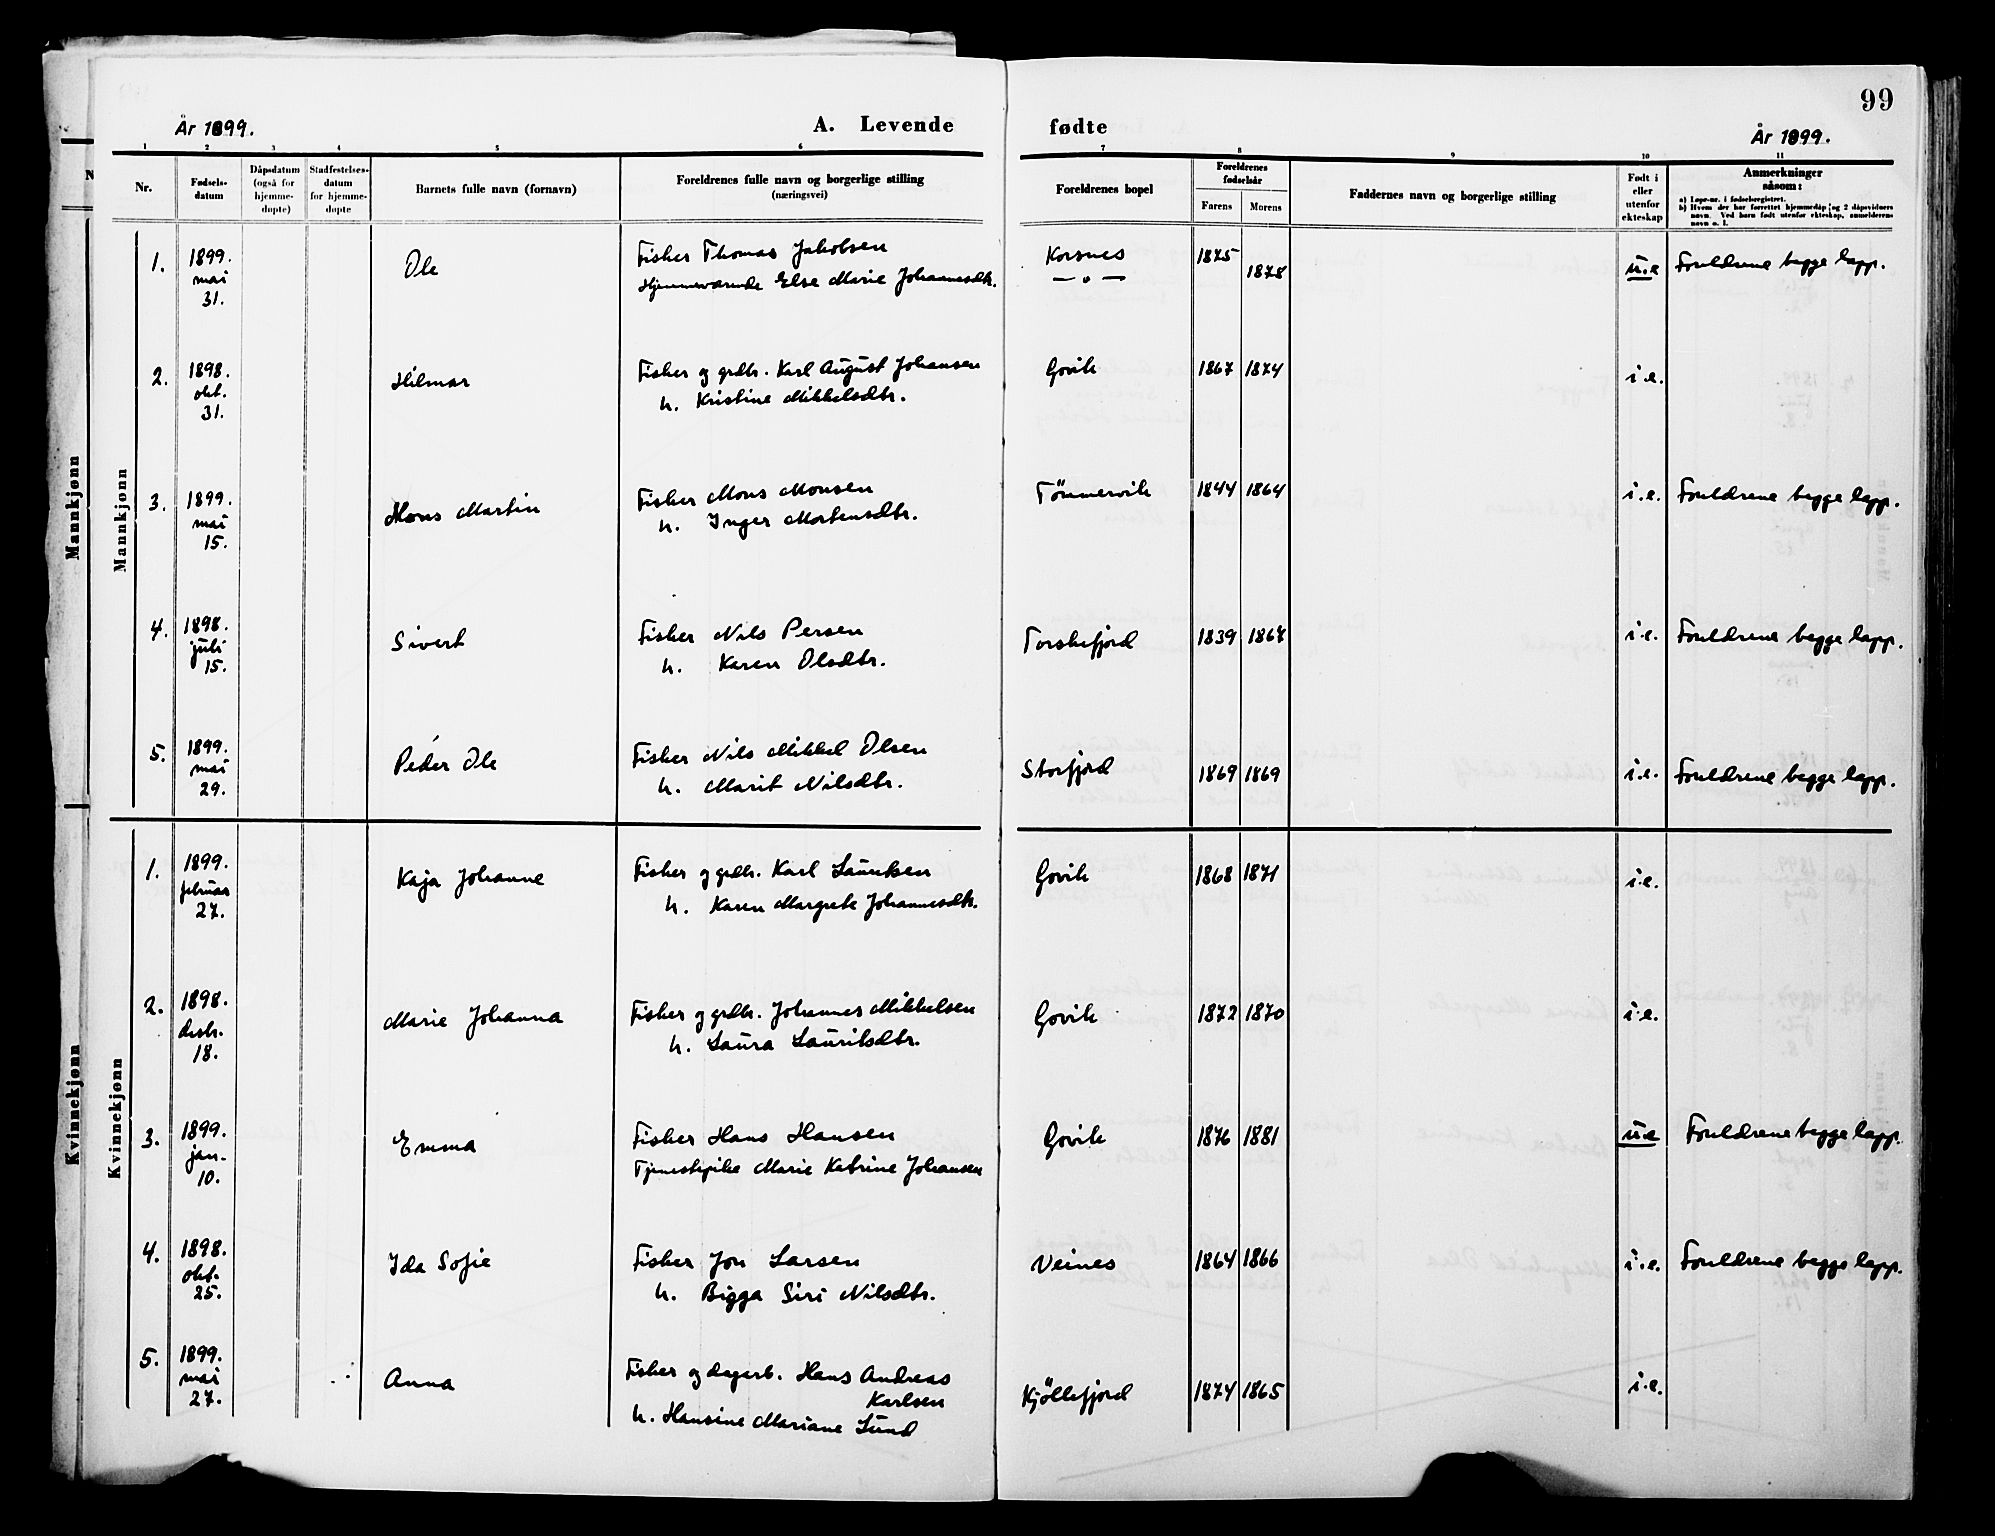 99
År 1899.
A. Levende
fødte
År 1899.
1 2 3 4 5 6 7 8 9 10 11
Nr.
Fødsels-
datum
Dåpsdatum
(også for
hjemme-
døpte)
Stadfestelses-
datum
for hjemme-
døpte
Barnets fulle navn (fornavn)
Foreldrenes fulle navn og borgerlige stilling
(næringsvei)
Foreldrenes bopel
Foreldrenes
fødselsår
Farens Morens
Faddernes navn og borgerlige stilling
Født i
eller
utenfor
ekteskap
Anmerkninger
såsom:
a) Løpe-nr. i fødselsregistret.
b) Hvem der har forrettet hjemmedåp og 2 dåpsvidners
navn. Ved barn født utenfor ekteskap, anmelderens
navn o. l.
Mannkjønn
Mannkjønn
1. 1899. mai 31. Ole
Fisker Thomas Jakobsen Korsnes 1875 u.e Foreldrene begge lapp.
Hjemmeværende Else Marie Johannesdtr. — " — 1878
2. 1898. okt. 31. Hilmar
Fisker og grdbr. Karl August Johansen Govik 1867 1874 i.e.
h. Kristine Mikkelsdtr.
3. 1899. mai 15. Mons Martin
Fisker Mons Monsen Tömmervik 1844 1864 i.e. Foreldrene begge lapp.
h. Inger Mortensdtr.
4. 1898. juli 15. Sivert
Fisker Nils Persen Torskefjord 1839 1867 i.e. Foreldrene begge lapp.
h. Karen Olsdtr.
5. 1899. mai 29. Peder Ole
Fisker Nils Mikkel Olsen Storfjord 1869 1869 i.e. Foreldrene begge lapp.
h. Marit Nilsdtr.
Kvinnekjønn
Kvinnekjønn
1. 1899. februar 27. Kaja Johanne
Fisker og grdbr. Karl Lauritsen Govik 1868 1871 i.e.
h. Karen Margrete Johannesdtr.
2. 1898. desbr. 18. Marie Johanna
Fisker og grdbr. Johannes Mikkelsen Govik 1872 1870 i.e.
h. Laura Lauritsdtr.
3. 1899. jan. 10. Emma
Fisker Hans Hansen Govik 1876 1881 u.e Foreldrene begge lapp.
Tjenestepike Marie Katrine Johansen
4. 1898. okt. 25. Ida Sofie
Fisker Jon Larsen Veines 1864 1866 i.e. Foreldrene begge lapp.
h. Bigga Siri Nilsdtr.
5. 1899. mai 27. Anna
Fisker og dagarb. Hans Andreas Kjöllefjord 1874 1865 i.e.
Karlsen
h. Hansine Mariane Lund